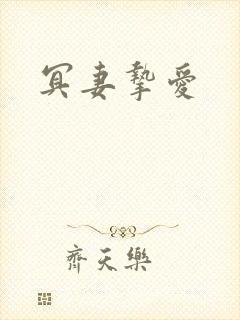 冥妻摯愛
齊天樂